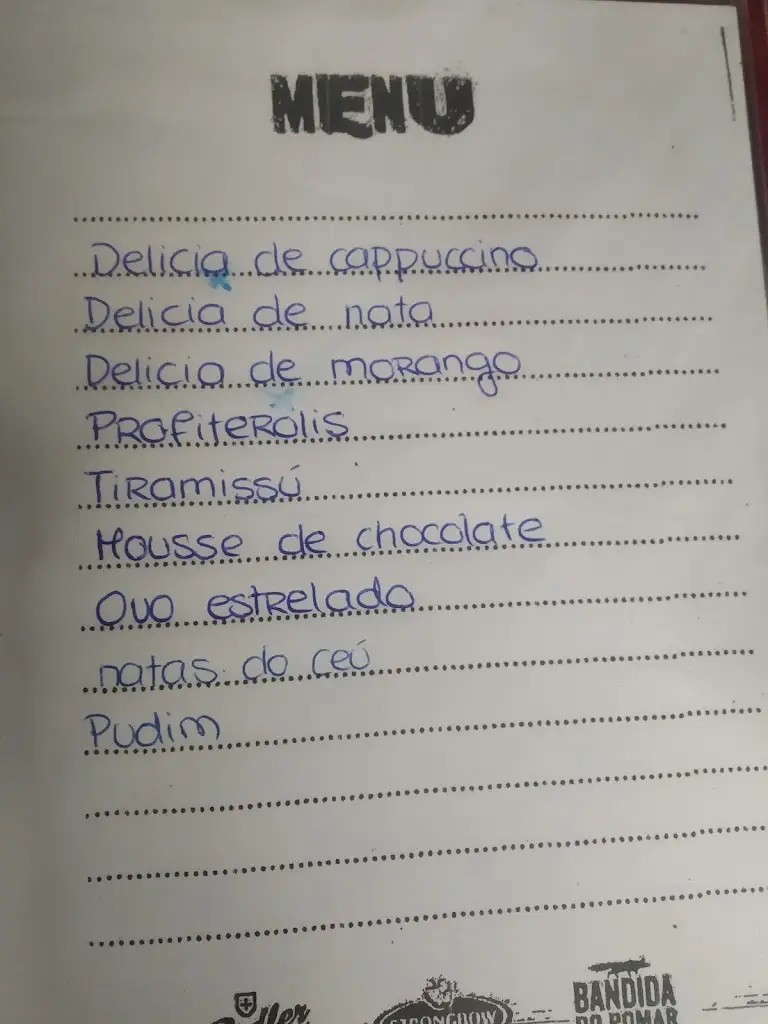 MENU
Delicia de cappuccino
Delicia de nata
Delicia de morango
Profiterolis
Tiramissú
Mousse de chocolate
Ovo estrelado
natas do ceú
Pudim
STRONGBOW
BANDIDA
DO POMAR